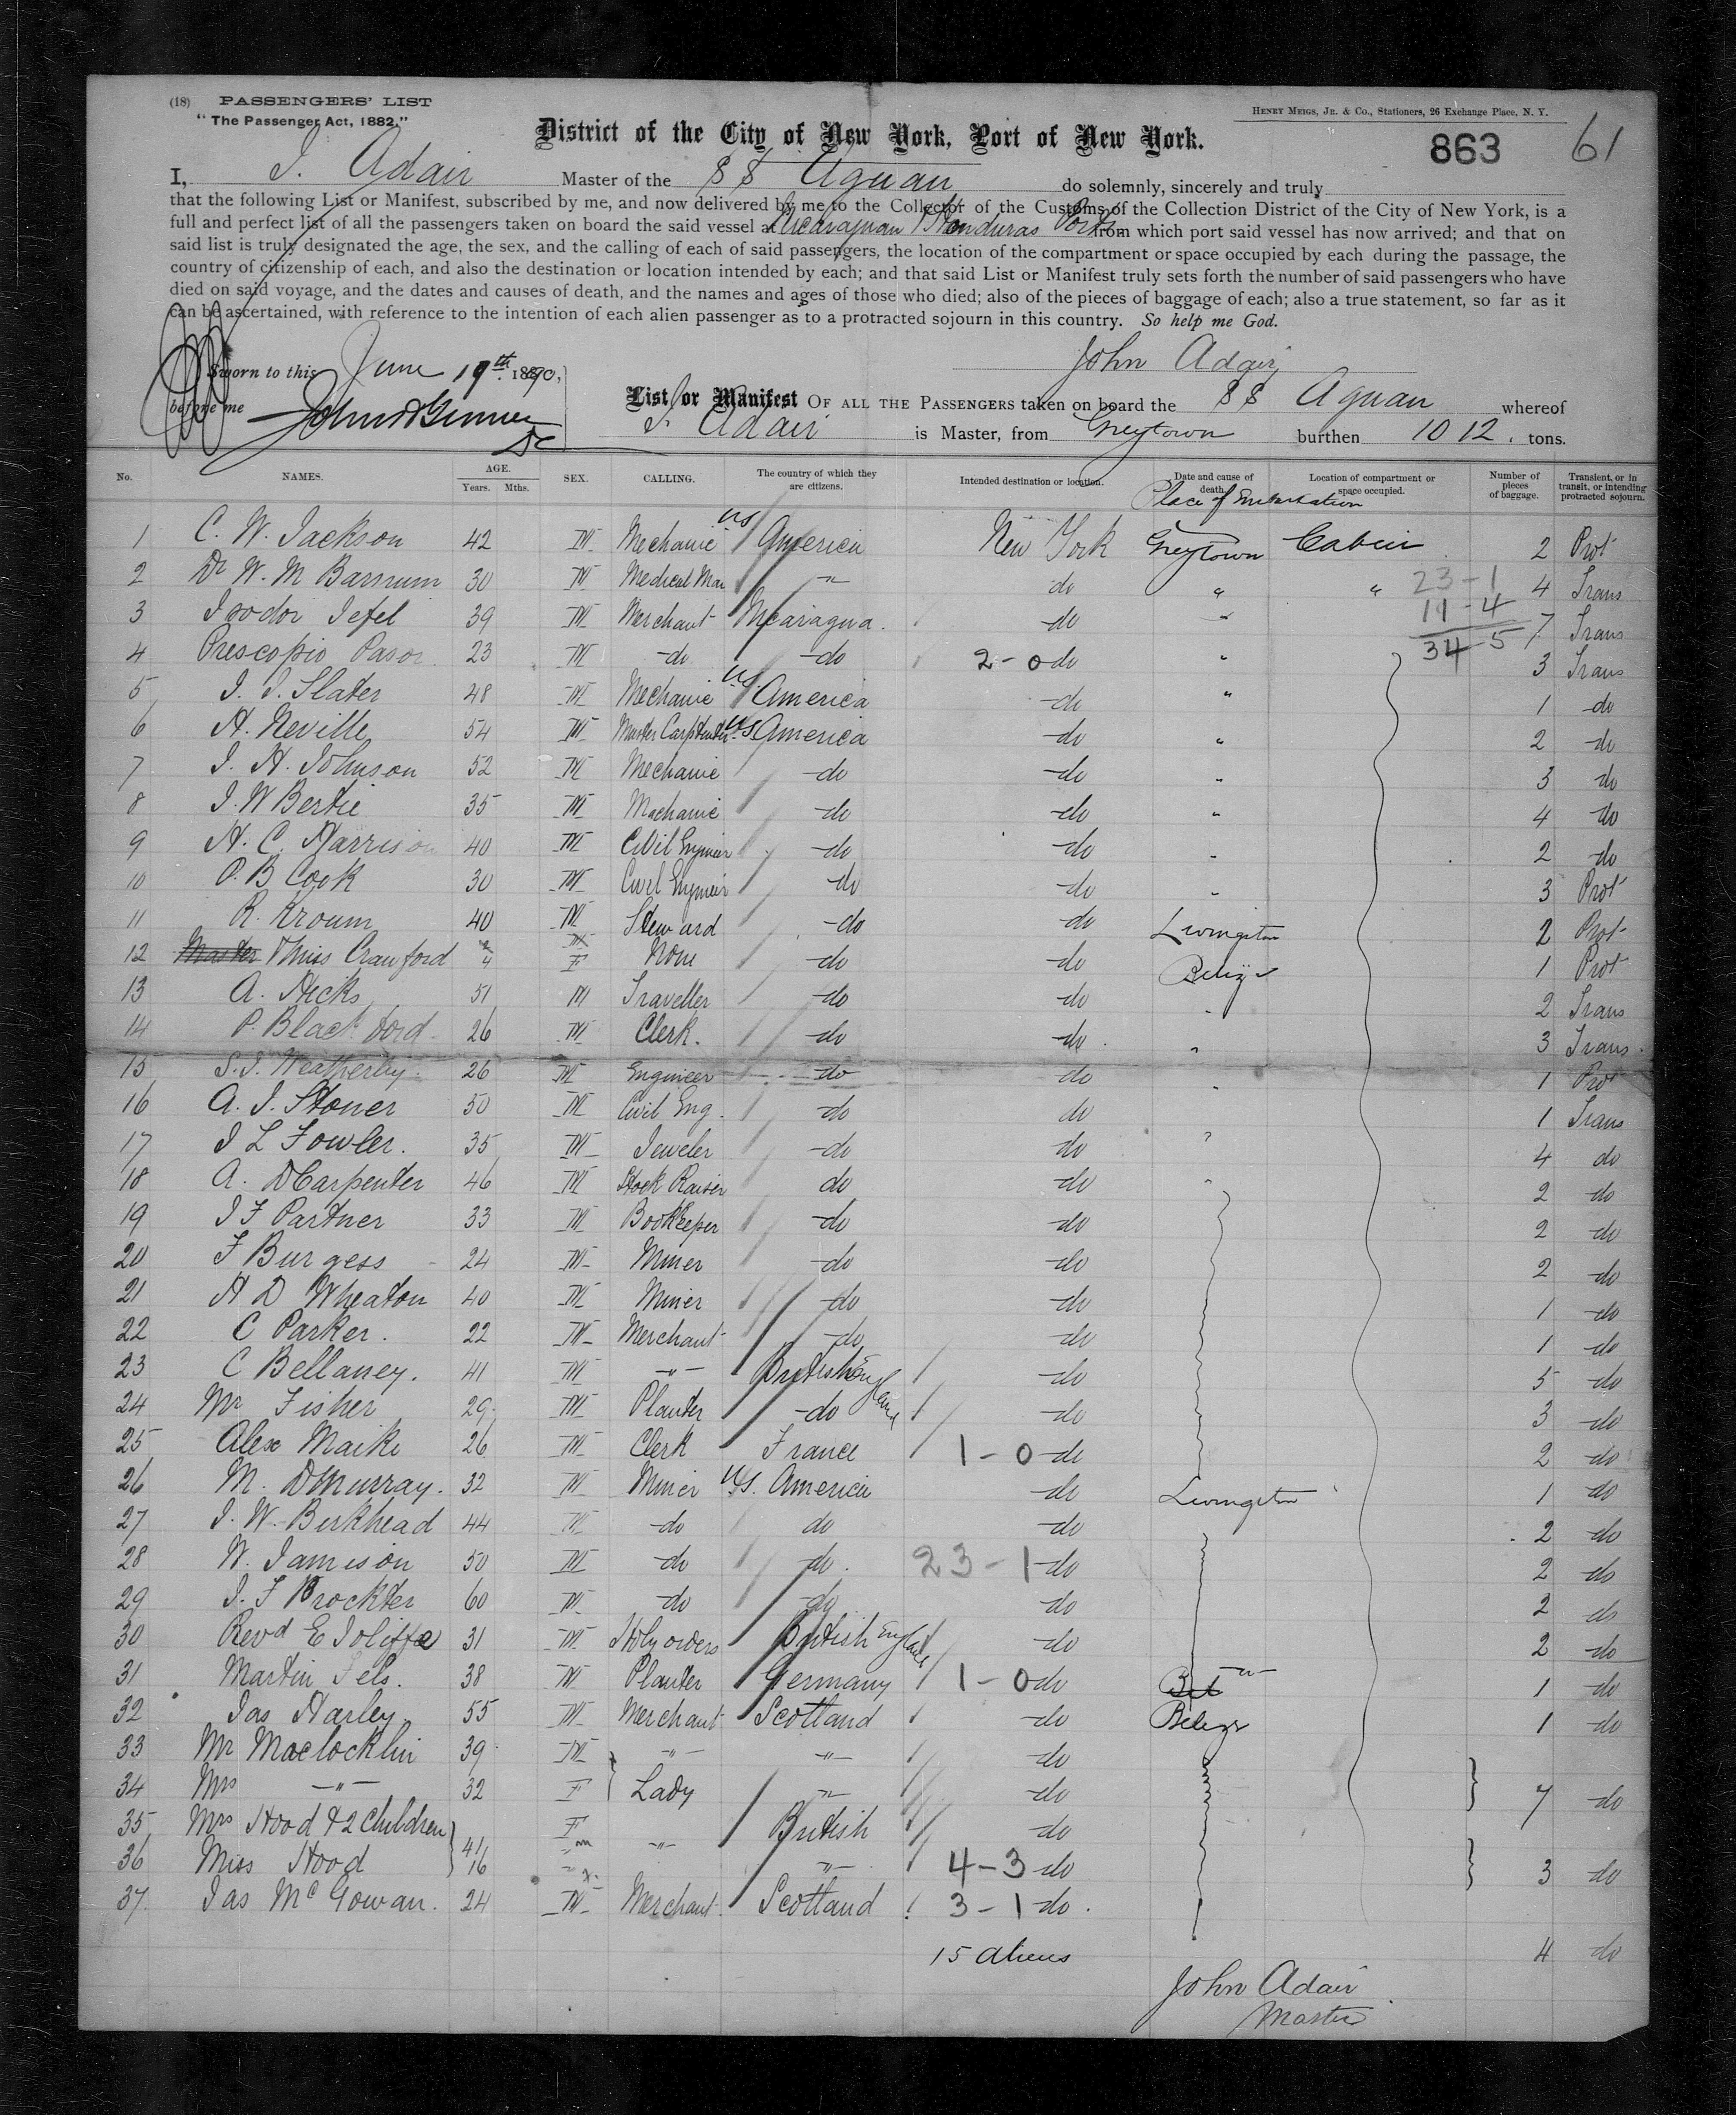 (18) PASSENGERS' LIST
"The Passenger Act, 1882."
HENRY MEIGS, JR. & CO., Stationers, 26 Exchange Place, N. Y.
District of the City of New York, Port of New York.
863 61
I, J. Adair Master of the SS Aguan do solemnly, sincerely and truly
that the following List or Manifest, subscribed by me, and now delivered by me to the Collector of the Customs of the Collection District of the City of New York, is a
full and perfect list of all the passengers taken on board the said vessel at Nicaraguan Honduras Ports from which port said vessel has now arrived; and that on
said list is truly designated the age, the sex, and the calling of each of said passengers, the location of the compartment or space occupied by each during the passage, the
country of citizenship of each, and also the destination or location intended by each; and that said List or Manifest truly sets forth the number of said passengers who have
died on said voyage, and the dates and causes of death, and the names and ages of those who died; also of the pieces of baggage of each; also a true statement, so far as it
can be ascertained, with reference to the intention of each alien passenger as to a protracted sojourn in this country. So help me God.
John Adair
Sworn to this June 19th 1890,
before me
List or Manifest OF ALL THE PASSENGERS taken on board the SS Aguan whereof
J. Adair is Master, from Greytown burthen 1012. tons.
No. NAMES. AGE. Years. Mths. SEX. CALLING. The country of which they are citizens. Intended destination or location. Date and cause of death. Location of compartment or space occupied. Number of pieces of baggage. Transient, or in transit, or intending protracted sojourn.
Place of Embarkation
1 C. W. Jackson 42 M Mechanic US America New York Greytown Cabin 2 Prot
2 Dr W. M Barnum 30 M Medical Man " do " " 23-1 4 Trans
3 Isodor Tefel 39 M Merchant Nicaragua. do " 11-4 7 Trans
4 Prescopio Pasos 23 M do do 2-0 do " 34-5 3 Trans
5 J. J. Slater 48 M Mechanic US America do " 1 do
6 H. Neville 54 M Master Carptenter US America do " 2 do
7 J. H. Johnson 52 M Mechanic do do " 3 do
8 J. W Bertie 35 M Mechanic do do " 4 do
9 H. C. Harrison 40 M Civil Engineer do do " 2 do
10 P. B Cook 30 M Civil Engineer do do " 3 Prot
11 R. Kroum 40 M Steward do do Livingston 2 Prot
12 Master & Miss Crawford 4 F None do do Belize 1 Prot
13 A. Hicks 51 M Traveller do do " 2 Trans
14 P. Blackford 26 M Clerk. do do " 3 Trans
15 S. J. Weatherby 26 M Engineer do do " 1 Prot
16 A. J. Stoner 50 M Civil Eng. do do 1 Trans
17 J L Fowler. 35 M Jeweler do do " 4 do
18 A. D Carpenter 46 M Stock Raiser do do " 2 do
19 J F Partner 33 M Bookkeeper do do 2 do
20 F Burgess 24 M Miner do do 2 do
21 H D Wheaton 40 M Miner do do 1 do
22 C Parker. 22 M Merchant do do 1 do
23 C Bellaney. 41 M " British England do 5 do
24 Mr Fisher 29 M Planter do do 3 do
25 Alex Maike 26 M Clerk France 1-0 do 2 do
26 M. D Murray. 32 M Miner US. America do Livingston 1 do
27 J. W. Berkhead 44 M do do do 2 do
28 W. Jamison 50 M do do. 23-1 do 2 do
29 J. F Brockter 60 M do do do 2 do
30 Revd E Joliffe 31 M Holy orders British England do 2 do
31 Martin Fels. 38 M Planter Germany 1-0 do Bel " 1 do
32 Jas Harley 55 M Merchant Scotland do Belize 1 do
33 Mr Maclocklin 39 M " " do
34 Mrs " 32 F Lady " do 7 do
35 Mrs Hood & 2 Children 41 F " British do
36 Miss Hood 16 " 4-3 do 3 do
37. Jas McGowan. 24 M Merchant Scotland 3-1 do.
15 Aliens 4 do
John Adair
Master